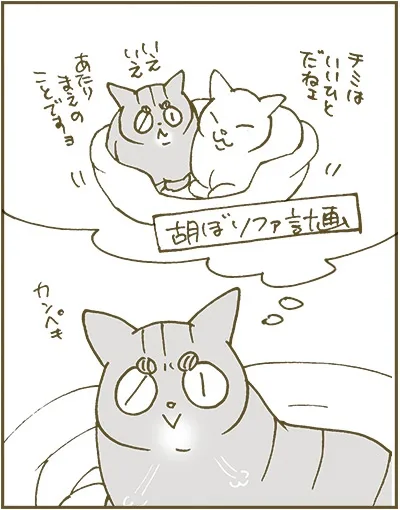 チミは
いいひと
だねェ
いえ
いえ
あたり
まえの
ことですョ
胡ぼリファ計画
カンペキ